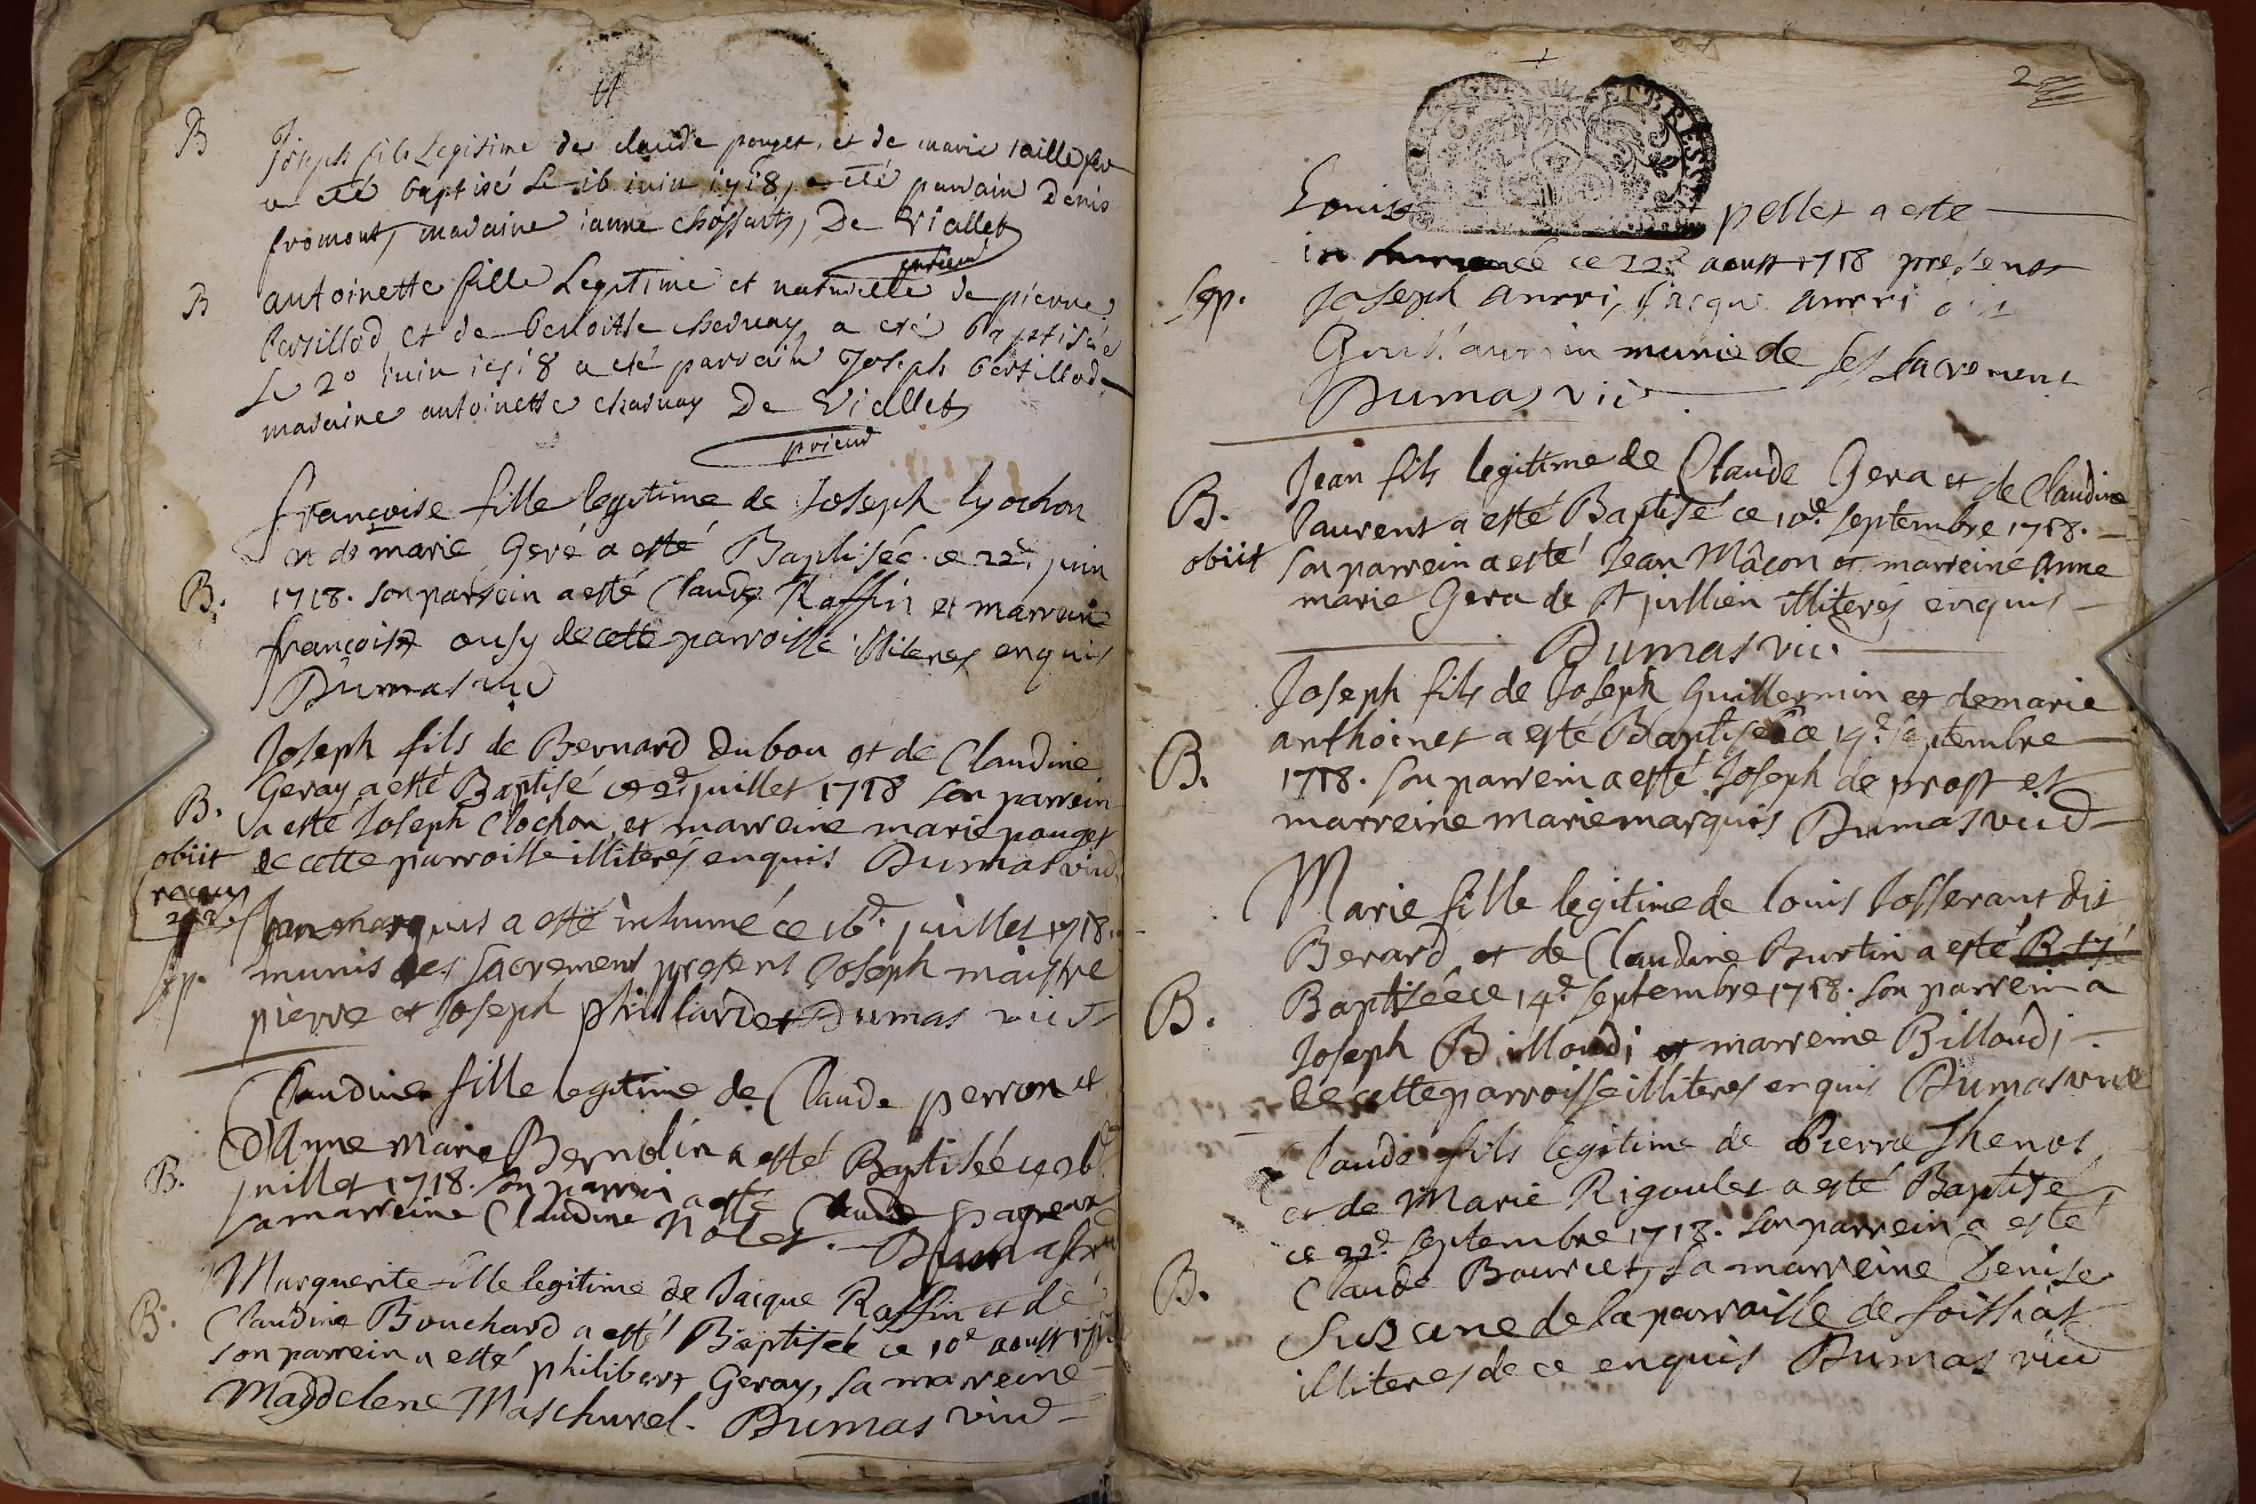 B
Joseph fils Legitime de claude pouget, et de marie taillefer
a eté baptisé Le 16 iuin 1718, a eté parrain Denis
fromont, maraine ianne chossart, De Viallet
prieur
B
antoinette fille Legitime et naturelle de pierre
bertillod et de benoitte charnay, a eté baptisée
Le 20 iuin 1718 a eté parrain Joseph bertillod
maraine antoinette charnay De Viallet
prieur
françoise fille legitime de Joseph lyochon
et de marie Geré a esté Baptisée ce 22e. juin
B.
1718. son parrein a esté Claude Raffin et marreine
françoise ousy de cette parroisse illiteres enquis
Dumas vic
Joseph fils de Bernard Dubou et de Claudine
Geray a esté Baptisé ce 2e. juillet 1718 son parrein
B.
a esté Joseph Clochon, et marreine marie pouget
obiit
de cette parroisse illiterés enquis Dumas vic
Jean marquis a esté inhumé ce 16e. juillet 1718.
Sep.
munis des sacrement present Joseph maistre
pierre et Joseph phillardet Dumas vic
Claudine fille legitime de Claude perron et
d'Anne Marie Berndlin a esté Baptisée ce 26e
B.
juillet 1718. son parrein a esté Claude pagneux
sa marreine Claudine Nolet. Dumas
Marguerite fille legitime de Jacque Raffin et de
B.
Claudine Bouchard a esté Baptisée ce 10e aoust 1718
son parrein a esté philibert Geray, sa marreine
Magdelene Maschurel. Dumas vic
2
Louise pellet a esté
inhumé ce 22e aoust 1718 present
Sep.
Joseph Anrri, Jacque anrri
munie de ses sacrement
Dumas vic
Jean fils legitime de Claude Gera et de Claudine
B.
laurent a esté Baptisé ce 10e. septembre 1718.
obiit
son parrein a esté Jean Mâcon et marreine Anne
marie Gera de St jullien illiteres enquis
Dumas vic.
Joseph fils de Joseph Guillermin et de marie
anthoinet a esté Baptisé ce septembre
B.
1718. son parrein a esté Joseph de prost et
marreine marie marquis Dumas vic
Marie fille legitime de louis Josserant dit
Berard et de Claudine Burtin a esté
B.
Baptisée ce 14e. septembre 1718. son parrein a
Joseph Billoudi et marreine Billoudi
de cette parroisse illiteres enquis Dumas vic
Claude fils legitime de Pierre Thenot
et de Marie Rigoulet a esté Baptisé
ce 22e. septembre 1718. son parrein a esté
B.
Claude Bourcet, sa marreine Denise
Suzane de la parroisse de foissiat
illiteres de ce enquis Dumas vic